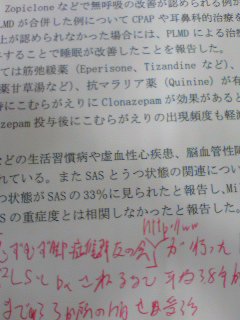 Zopiclone などで無呼吸の改善が認められる例が
PLMD が合併した例について CPAP や耳鼻科的治療を
上が認められなかった場合には、PLMD による治療
することで睡眠が改善したことを報告した。
ては筋弛緩薬 (Eperisone、Tizandine など)、
薬甘草湯など)、抗マラリア薬 (Quinine) が有
時にこむらがえりに Clonazepam が効果があると
zepam 投与後にこむらがえりの出現頻度も軽減
などの生活習慣病や虚血性心疾患、脳血管性障
れている。また SAS とうつ状態の関連につい
つ状態が SAS の 33% に見られたと報告し、Mi
S の重症度とは相関しなかったと報告した。
http://ww
むずむず脚症候群友の会 が行った
RLS と
まで